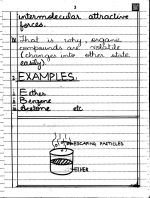 3
intermolecular attractive
forces.
That is why organic
compounds are volatile
(changes into other state
easily)
EXAMPLES:
1. Ether
2. Benzene
3. Acetone etc
ESCAPING PARTICLES
ETHER